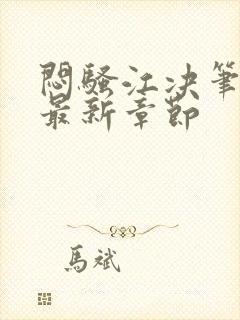 悶騷江決筆
最新章節
馬斌